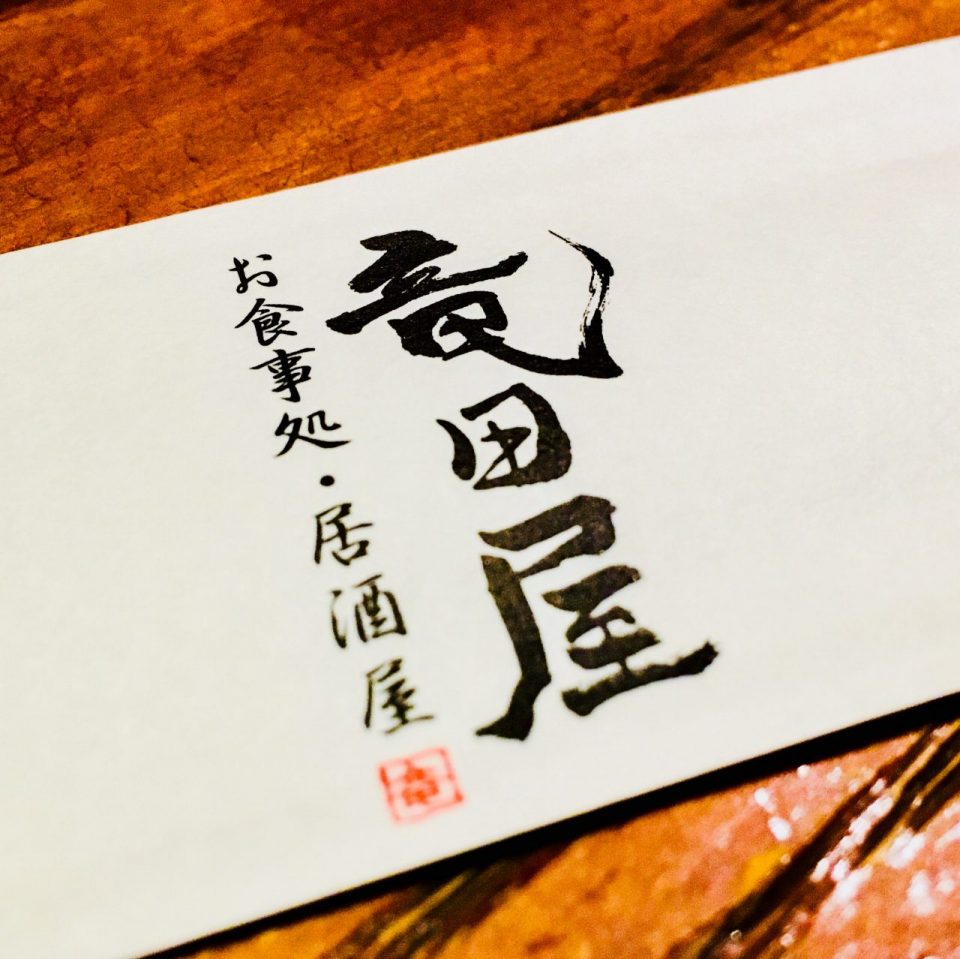 竜田屋
お食事処・居酒屋
竜